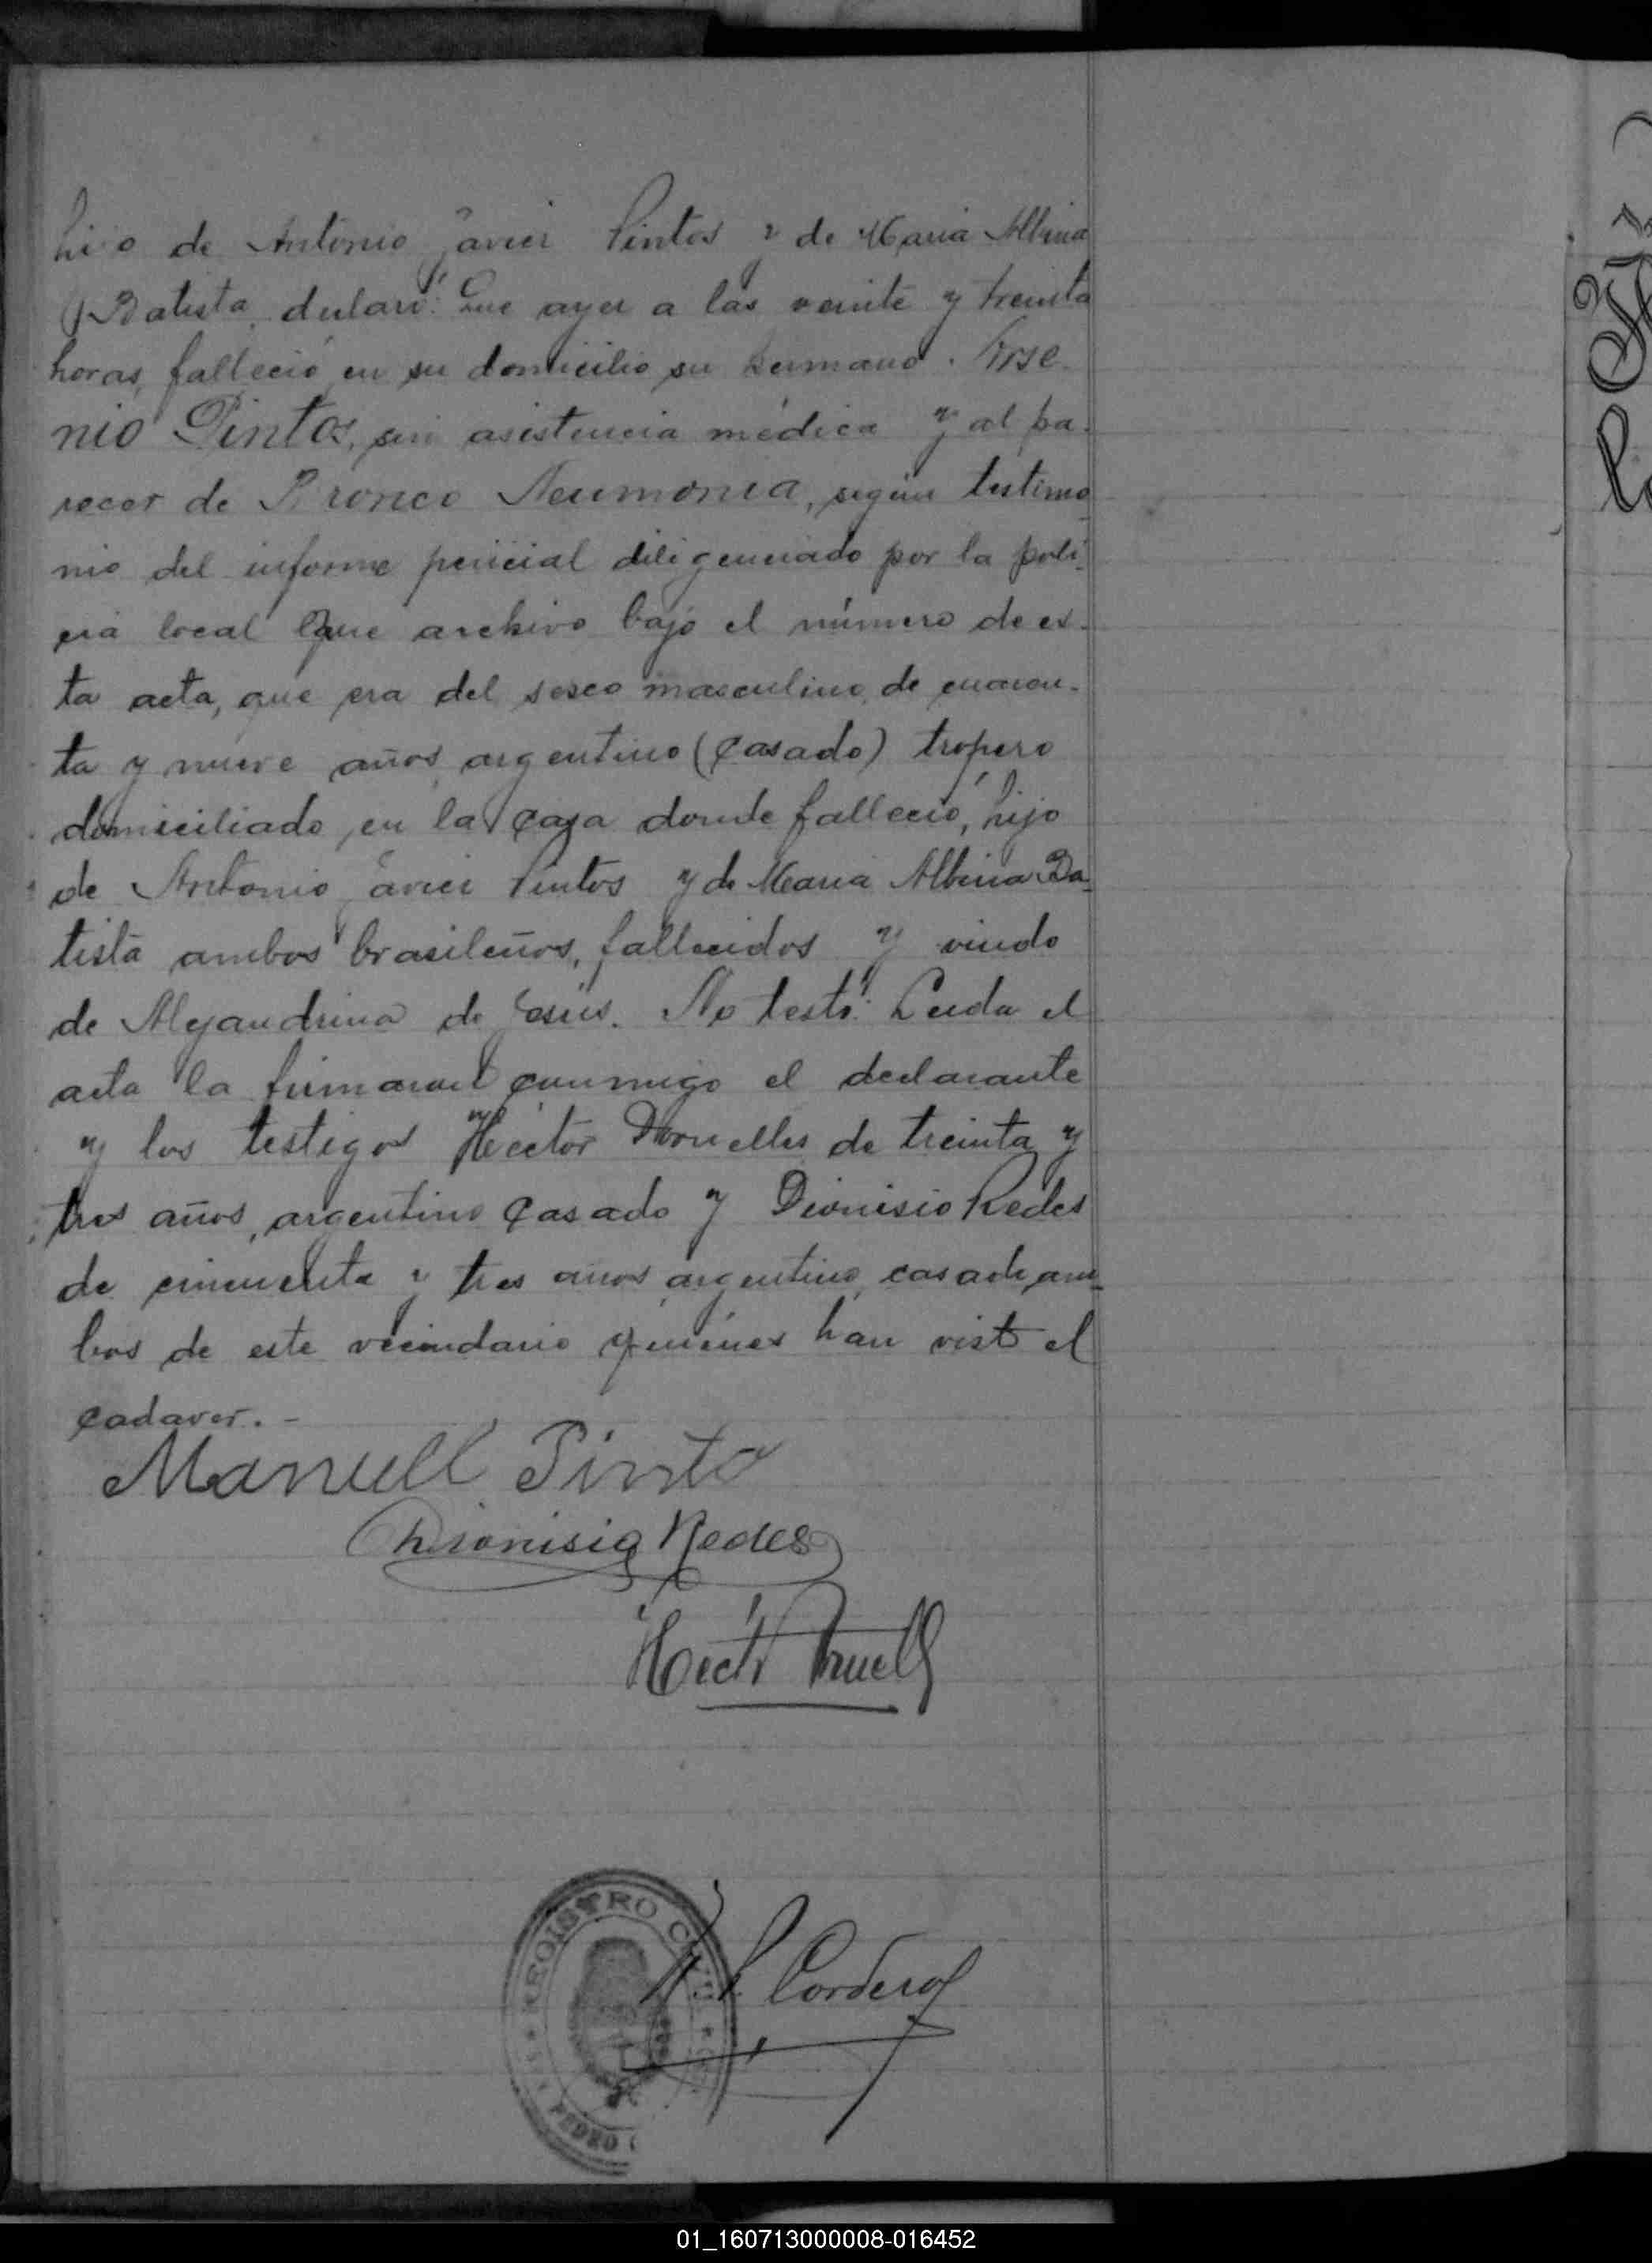 hijo de Antonio Javier Pintos y de Maria Albina
Batista, declaró: Que ayer a las veinte y treinta
horas, falleció en su domicilio su hermano Arse
nio Pintos, sin asistencia médica y al pa-
recer de Bronco Neumonia, según testimo
nio del informe pericial diligenciado por la poli-
cia local que archivo bajo el número de es-
ta acta, que era del sexo masculino, de cuaren-
ta y nueve años argentino (casado) tropero
domiciliado en la casa donde falleció, hijo
de Antonio Javier Pintos y de Maria Albina Ba-
tista ambos brasileños, fallecidos y viudo
de Alejandrina de Jesús. No testó. Leida el
acta la firmaron conmigo el declarante
y los testigos Héctor Dornelles de treinta y
tres años, argentino casado y Dionisio Redes
de cincuenta y tres años, argentino, casado, am-
bos de este vecindario quiénes han visto el
cadaver. -
Manuell Pinto
Dionisio Redes
REGISTRO CIVIL
Cordero
PEDRO
01_160713000008-016452